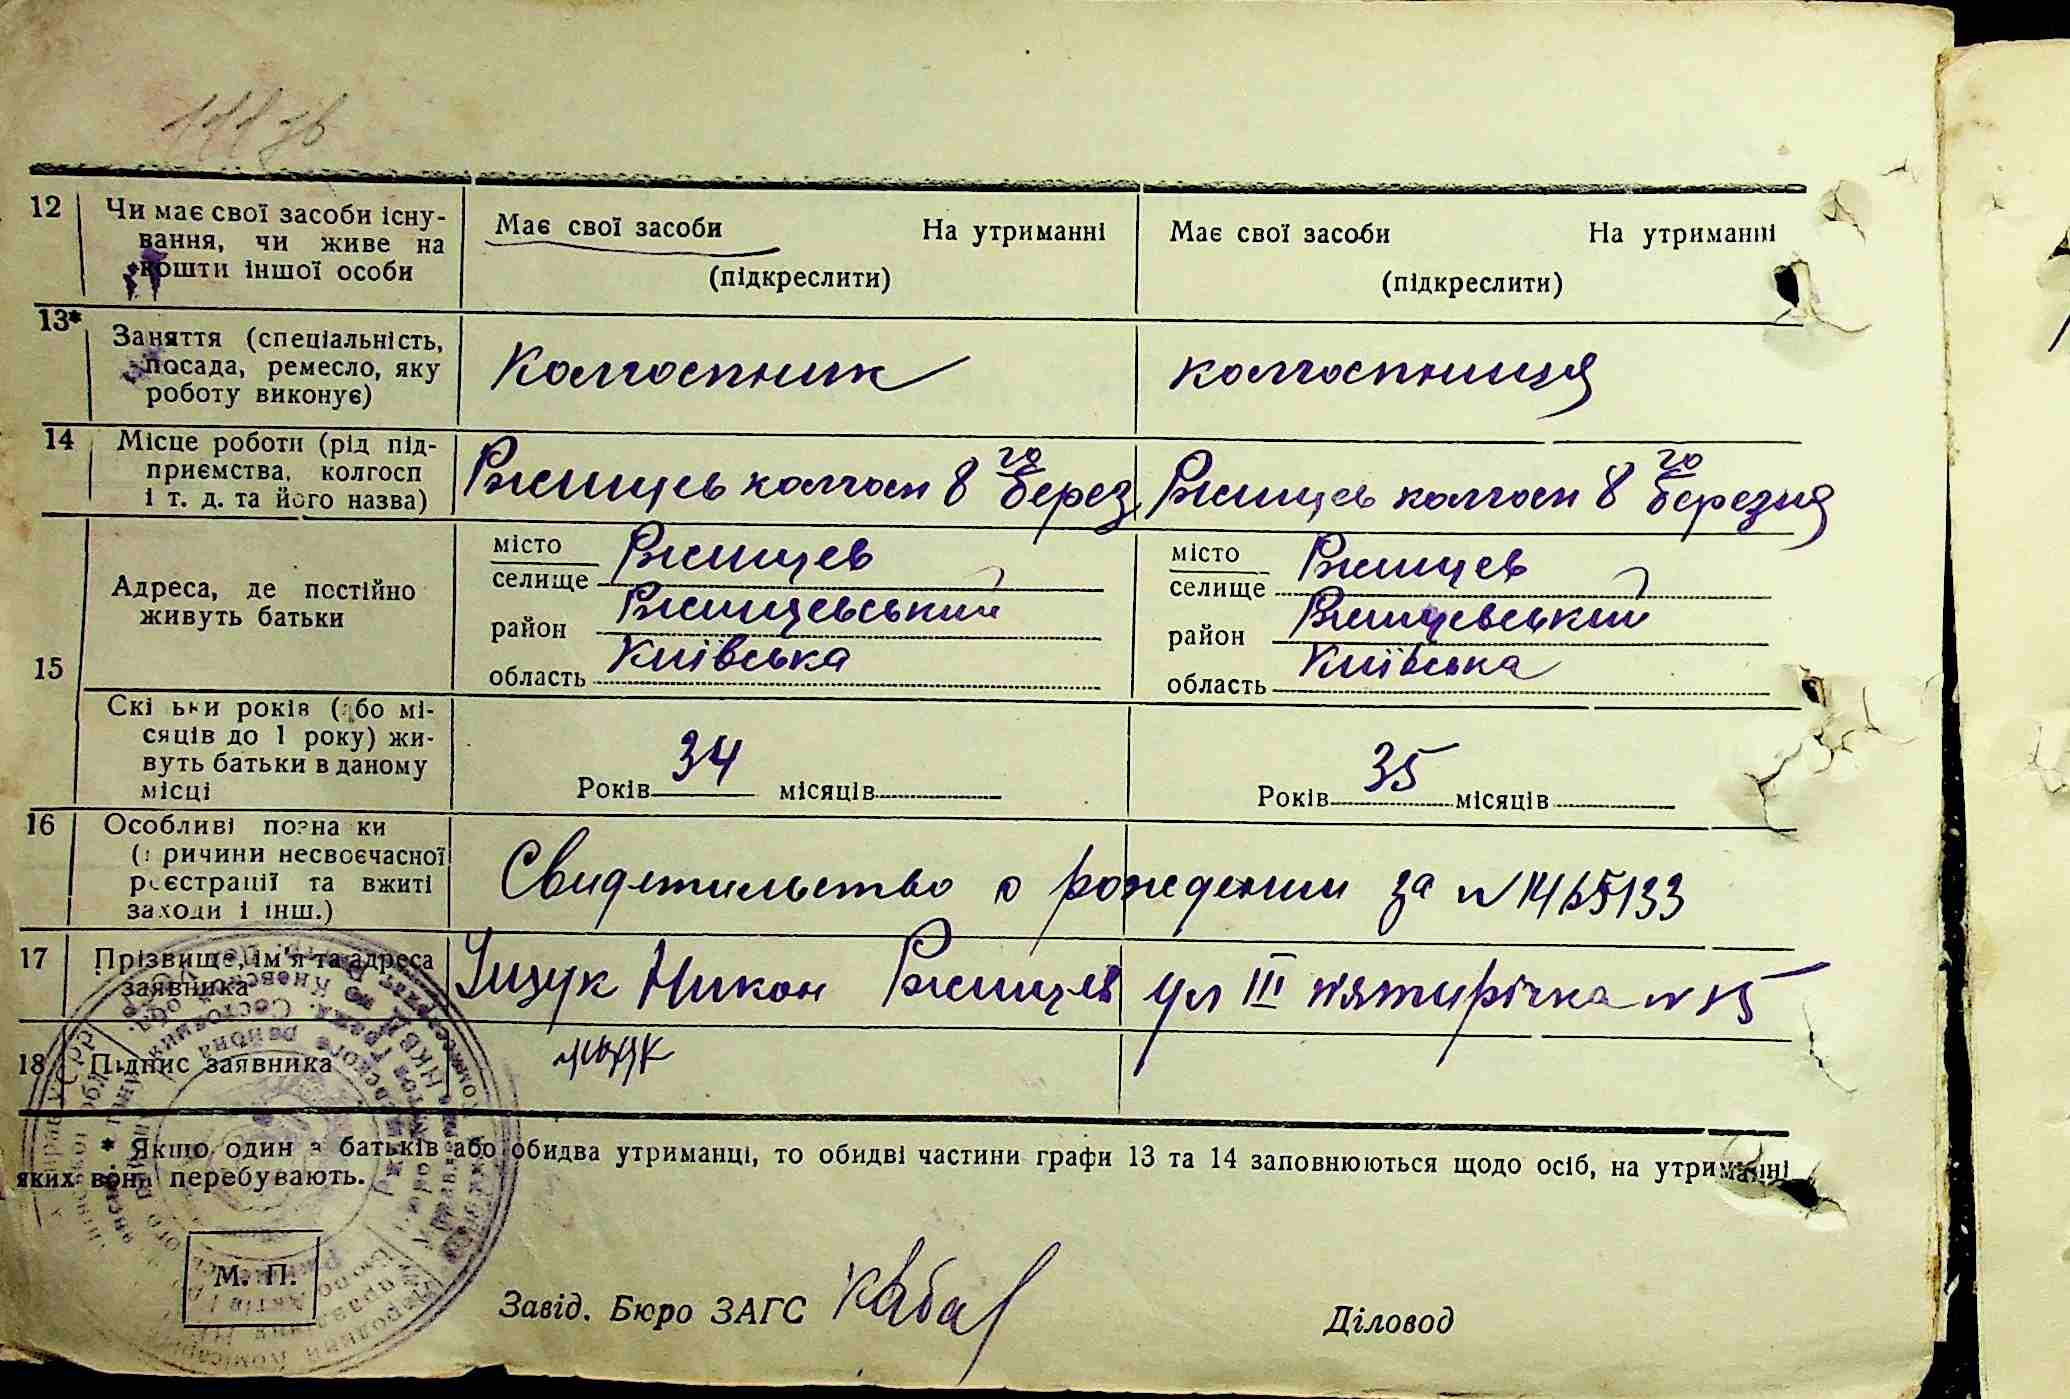 12 Чи має свої засоби існу-
вання, чи живе на
кошти іншої особи
Має свої засоби На утриманні
(підкреслити)
Має свої засоби На утриманні
(підкреслити)
13* Заняття (спеціальність,
посада, ремесло, яку
роботу виконує)
Колгоспник
колгоспниця
14 Місце роботи (рід під-
приємства, колгосп
і т. д. та його назва)
Ржищев колгосп 8 го берез
Ржищев колгосп 8 го березня
15 Адреса, де постійно
живуть батьки
місто Ржищев
селище
район Ржищевський
область Київська
місто Ржищев
селище
район Ржищевський
область Київська
Скі ьки років (або мі-
сяців до 1 року) жи-
вуть батьки в даному
місці
Років 34 місяців
Років 35 місяців
16 Особливі позна ки
( ричини несвоєчасної
реєстрації та вжиті
заходи і інш.)
Свидетельство о рождении за №
17 Прізвище, ім'я та адреса
заявника
Ищук Никон Ржищев ул III п'ятирічка № 15
18 Підпис заявника
* Якщо один з батьків або обидва утриманці, то обидві частини графи 13 та 14 заповнюються щодо осіб, на утриманні
яких вони перебувають.
М. П.
Завід. Бюро ЗАГС
Діловод